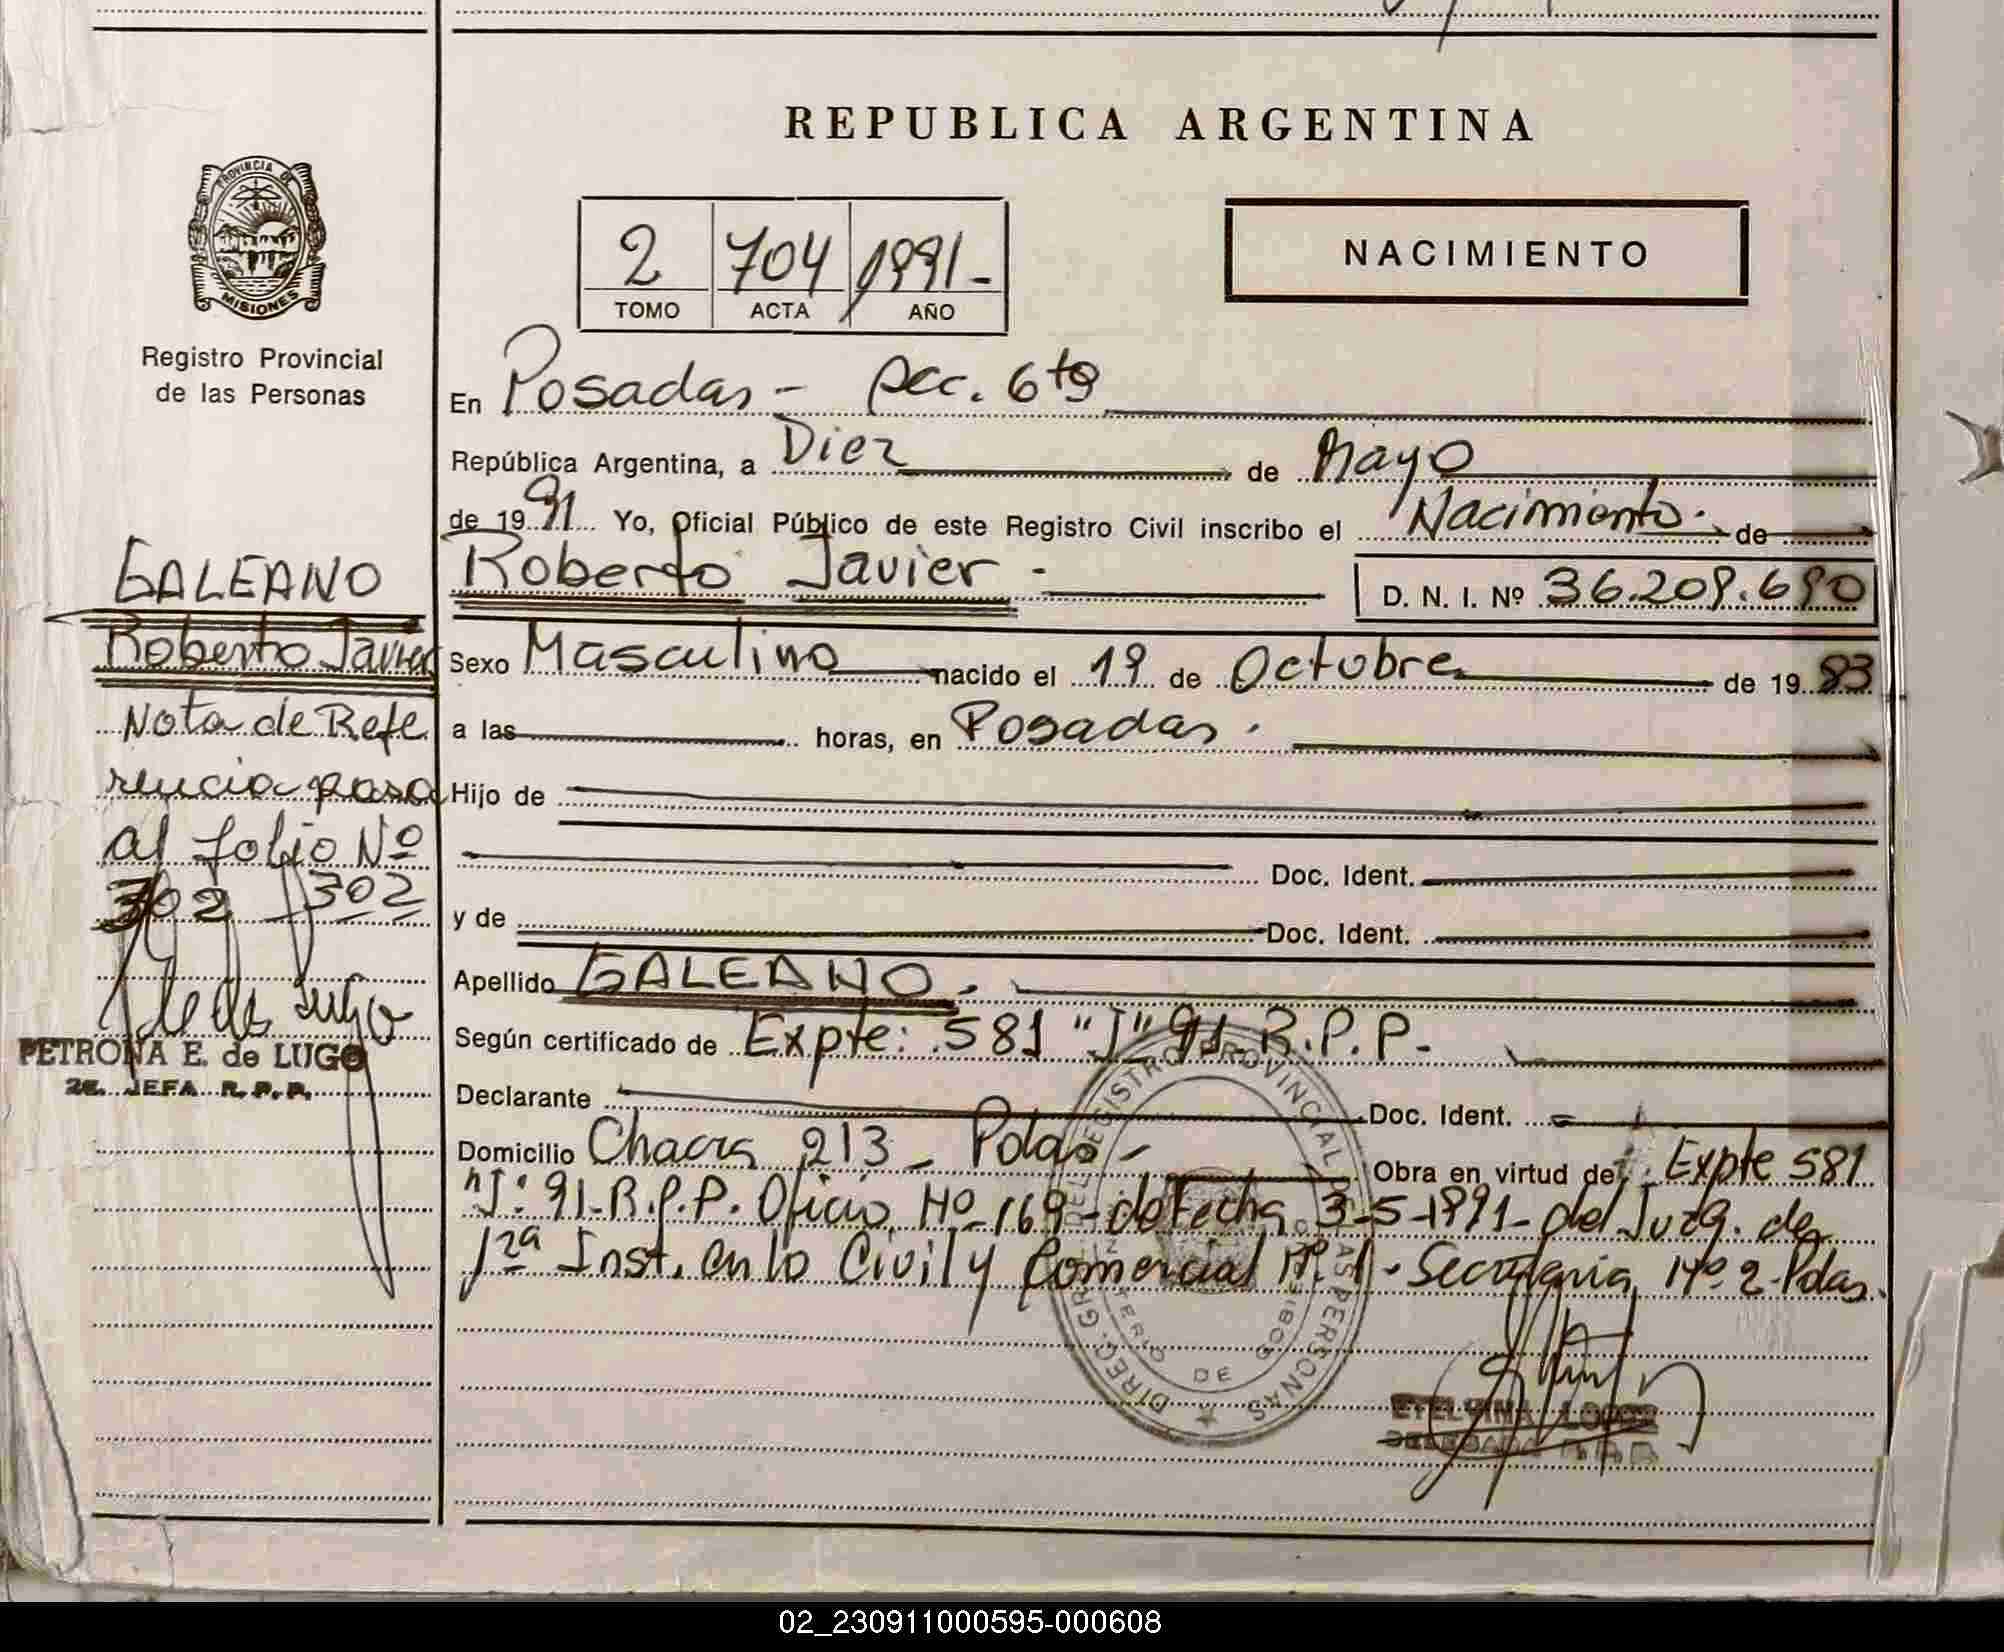 REPUBLICA ARGENTINA
PROVINCIA DE
MISIONES
Registro Provincial
de las Personas
2 704 1991-
TOMO ACTA AÑO
NACIMIENTO
En Posadas - Sec. 6ta
República Argentina, a Diez de Mayo
de 1991 Yo, Oficial Público de este Registro Civil inscribo el Nacimiento. de
Roberto Javier - D. N. I. Nº 36.209.690
Sexo Masculino nacido el 19 de Octubre de 1983
a las horas, en Posadas.
Hijo de
Doc. Ident.
y de Doc. Ident.
Apellido GALEANO.
Según certificado de Expte: 581 "J" 91-R.P.P.
Declarante Doc. Ident.
Domicilio Chacra 213 - Pdas - Obra en virtud de: Expte 581
"J" 91-R.P.P. Oficio Nº 169 - de Fecha 3-5-1991- del Juzg. de
1ra Inst. en lo Civil y Comercial Nº 1 - Secretaria Nº 2-Pdas.
GALEANO
Roberto Javier
Nota de Refe
rencia pasa
al folio Nº
302 302
PETRONA E. de LUGO
2E. JEFA R. P. P.
DIREC. GRAL. DEL REGISTRO PROVINCIAL DE LAS PERSONAS
MINISTERIO DE GOBIERNO
ETELVINA LOPEZ
02_230911000595-000608